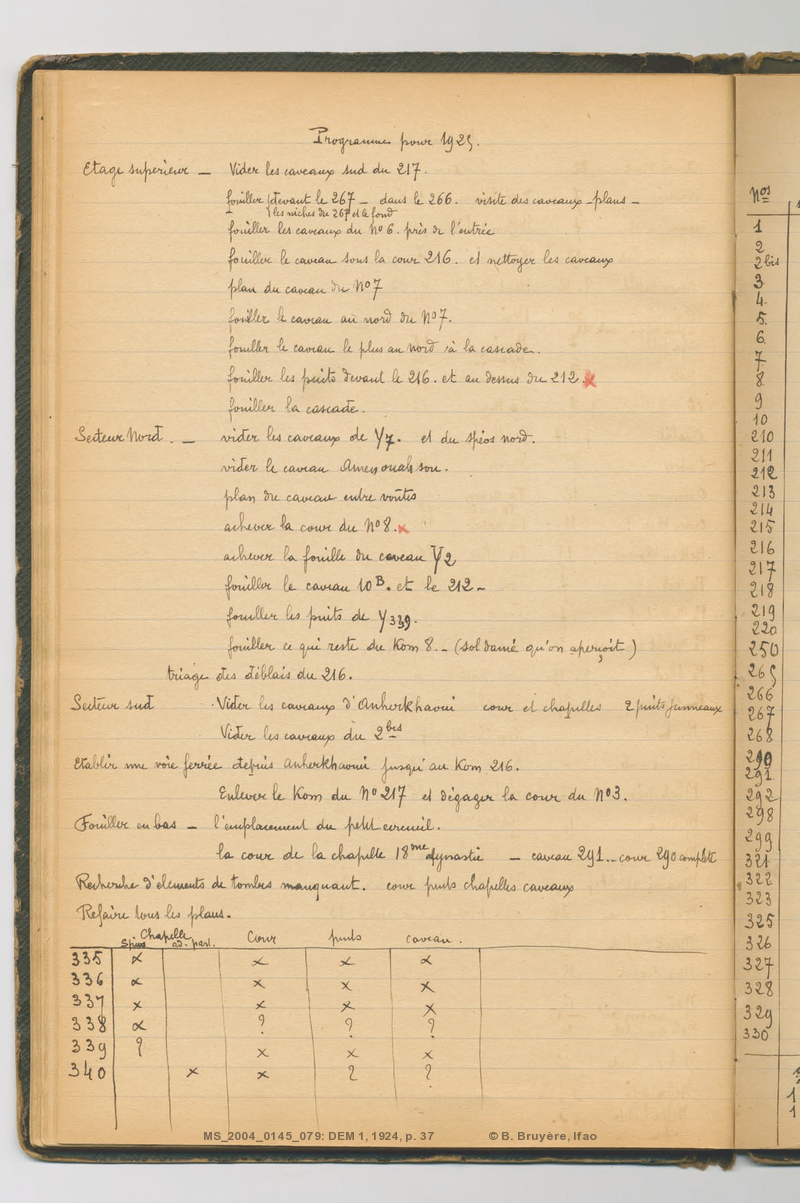 Programme pour 1925.
Etage supérieur — Vider les caveaux sud du 217.
fouiller devant le 267 — dans le 266. visite des caveaux — plans —
les niches du 267 et le fond
fouiller les caveaux du No 6. près de l'entrée
fouiller le caveau sous la cour 216. et nettoyer les caveaux
plan du caveau du No 7
fouiller le caveau au nord du No 7.
fouiller le caveau le plus au Nord à la cascade.
fouiller les puits devant le 216. et au dessus du 212. x
fouiller la cascade.
Secteur Nord. — vider les caveaux de Y7. et du spéos nord.
vider le caveau Amenouahsou.
plan du caveau entre voûtes
achever la cour du No 8. x
achever la fouille du caveau Y2
fouiller le caveau 10B. et le 212 —
fouiller les puits de Y339.
fouiller ce qui reste du Kom 8. — (sol damé qu'on aperçoit)
triage des déblais du 216.
Secteur sud Vider les caveaux d'Anherkhaoui cour et chapelles 2 puits jumeaux
Vider les caveaux du 2bis
Etablir une voie ferrée depuis Anherkhaoui jusqu'au Kom 216.
Enlever le Kom du No 217 et dégager la cour du No 3.
Fouiller en bas — l'emplacement du petit cercueil.
la cour de la chapelle 18me dynastie — caveau 291 — cour 290 complète
Recherche d'elements de tombes manquant. cour puits chapelles caveaux
Refaire tous les plans.
Chapelle Cour puits caveau.
335 x x x x
336 x x x x
337 x x x x
338 x ? ? ?
339 ? x x x
340 x x ? ?
Nos
1
2
2 bis
3
4.
5.
6.
7
8
9
10
210
211
212
213
214
215
216
217
218
219
220
250
265
266
267
268
290
291
292
298
299
321
322
323
325
326
327
328
329
330
MS_2004_0145_079: DEM 1, 1924, p. 37 © B. Bruyère, Ifao